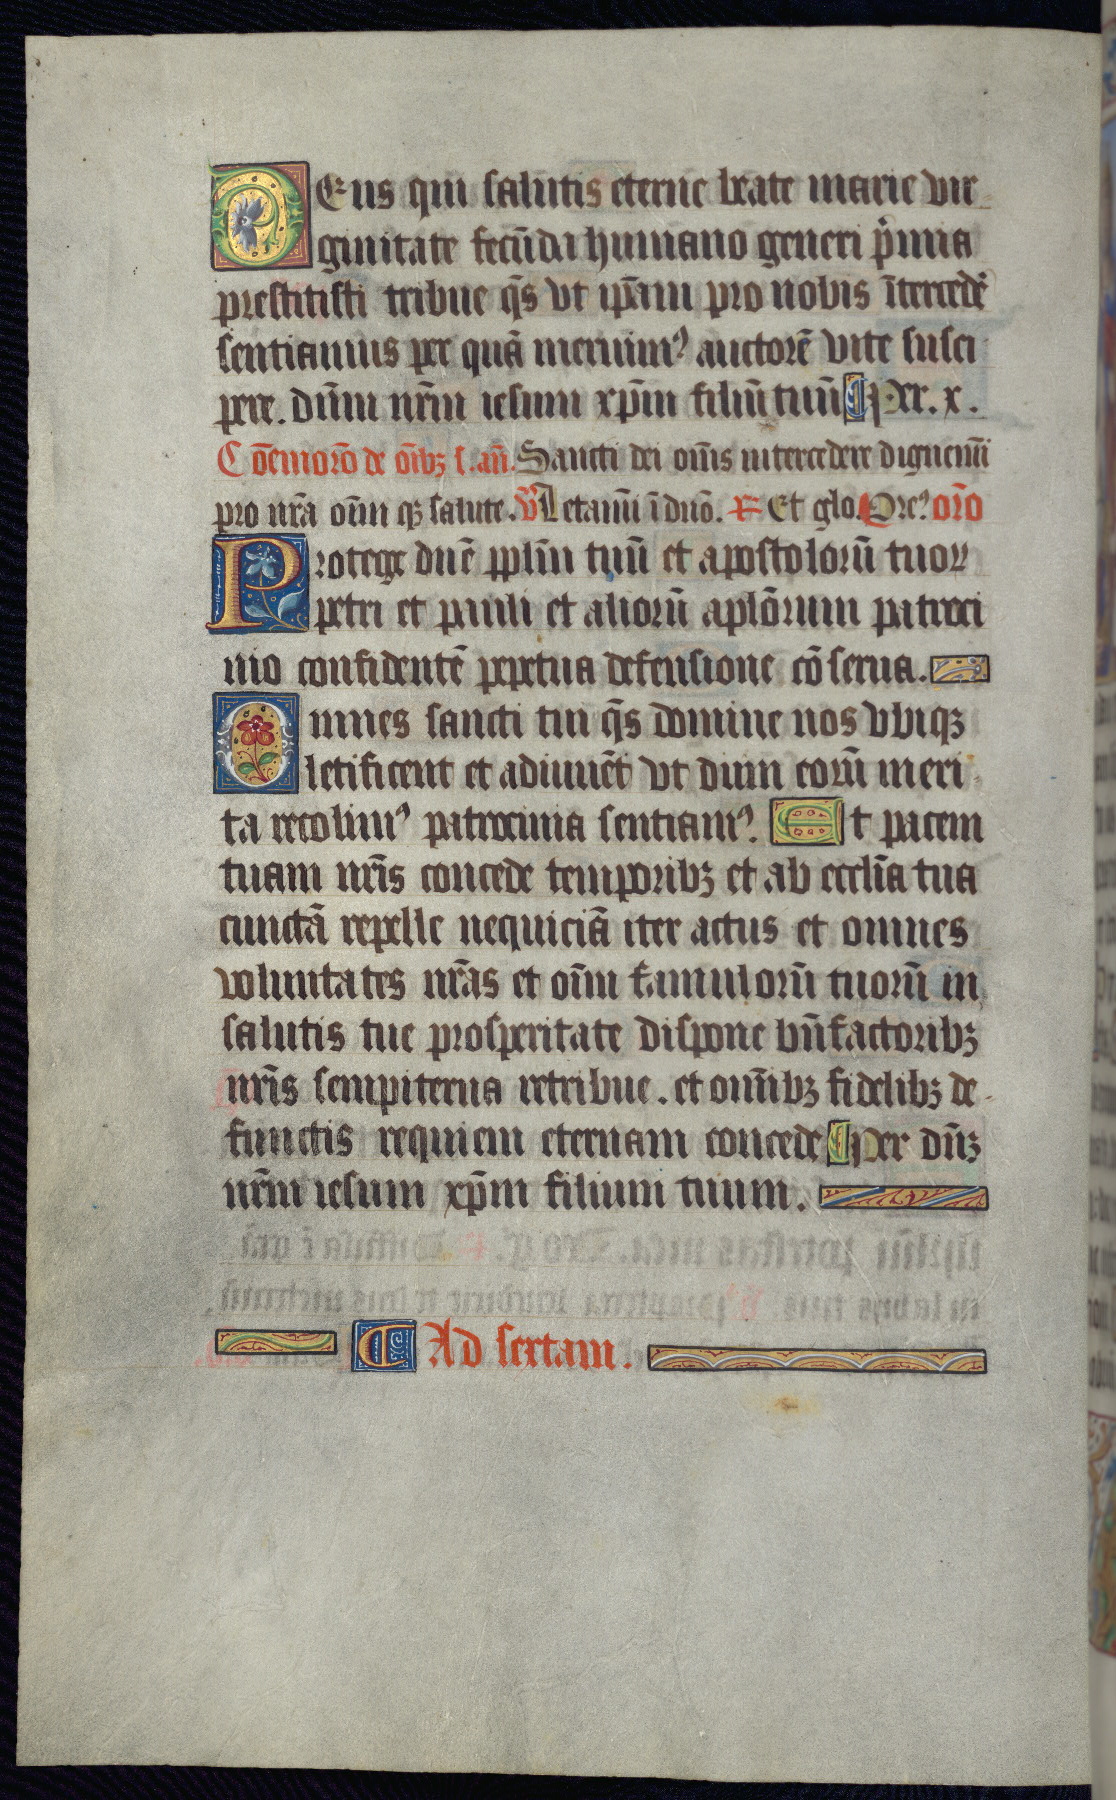 Deus qui salutis eterne beate marie vir
ginitate fecūda humano generi p̄mia
prestitisti tribue q̄s vt ip̄am pro nobis ītercedē
sentiamus per quā meruim⁹ auctorē vite susci
pere. dūm nr̄m iesum xp̄m filiū tuū Per. x.
Cōmemorō de oībꝫ s. an̄. Sancti dei om̄s intercedere dignemī
pro nr̄a oīm qꝫ salute. V̄ Letamī ī dnō. R Et glo. Ore⁹ orō
Protege dnē pplm̄ tuū et apostolorū tuoꝝ
petri et pauli et aliorū aplōrum patroci
nio confidentē perpetua defensione cōserua.
Omnes sancti tui q̄s domine nos vbiqꝫ
letificent et adiuuēt vt dum eorū meri
ta recolim⁹ patrocinia sentiam⁹. Et pacem
tuam nr̄is concede temporibꝫ et ab eccl̄ia tua
cunctā repelle nequiciā iter actus et omnes
voluntates nr̄as et oīm famulorū tuorū in
salutis tue prosperitate dispone bn̄factoribꝫ
nr̄is sempiterna retribue. et om̄ibꝫ fidelibꝫ de
functis requiem eternam concede Per dn̄ꝫ
nr̄m iesum xp̄m filium tuum.
Ad sextam.